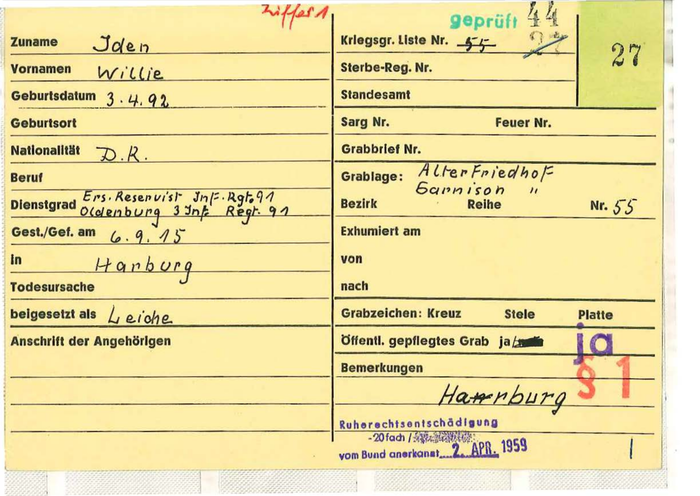 Ziffer 1
geprüft 44
27
27
Zuname Iden
Vornamen Willie
Geburtsdatum 3.4.92
Geburtsort
Nationalität D.R.
Beruf
Dienstgrad Ers. Reservist Inf. Rgt. 91
Oldenburg 3 Inf. Regt. 91
Gest./Gef. am 6.9.15
in Harburg
Todesursache
beigesetzt als Leiche
Anschrift der Angehörigen
Kriegsgr. Liste Nr. 55
Sterbe-Reg. Nr.
Standesamt
Sarg Nr. Feuer Nr.
Grabbrief Nr.
Grablage: Alter Friedhof
Garnison "
Bezirk Reihe Nr. 55
Exhumiert am
von
nach
Grabzeichen: Kreuz Stele Platte
Öffentl. gepflegtes Grab ja/ ja
Bemerkungen § 1
Harburg
Ruherechtsentschädigung
-20fach/
vom Bund anerkannt 2. APR. 1959
1